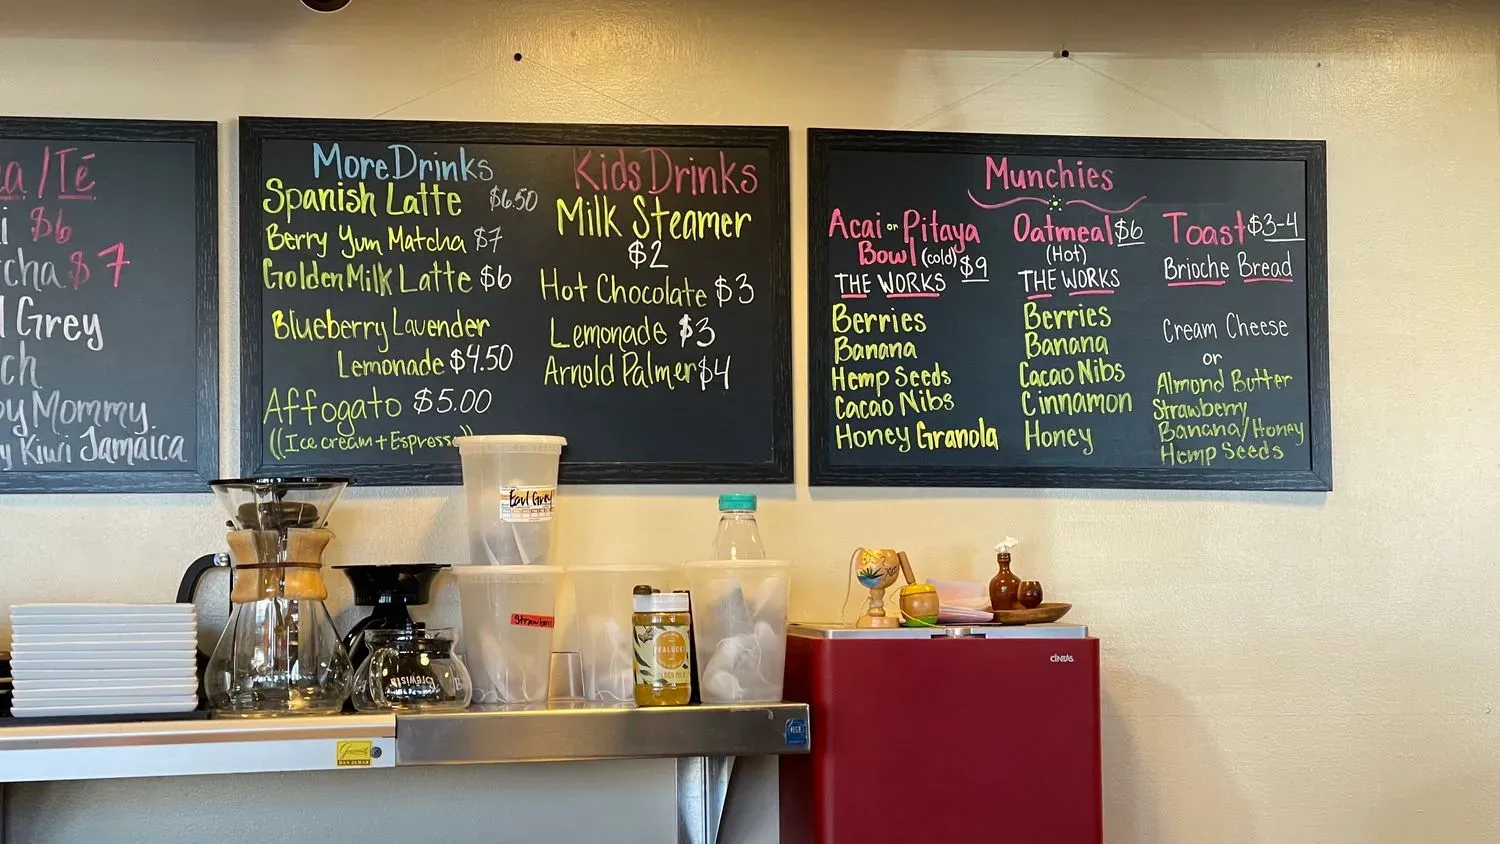 /Té
$6
$7
Grey
Mommy
Kiwi Jamaica
More Drinks
Spanish Latte $6.50
Berry Yum Matcha $7
Golden Milk Latte $6
Blueberry Lavender
Lemonade $4.50
Affogato $5.00
((Ice cream + Espresso))
Kids Drinks
Milk Steamer
$2
Hot Chocolate $3
Lemonade $3
Arnold Palmer $4
Munchies
Acai or Pitaya
Bowl (cold) $9
THE WORKS
Berries
Banana
Hemp Seeds
Cacao Nibs
Honey Granola
Oatmeal $6
(Hot)
THE WORKS
Berries
Banana
Cacao Nibs
Cinnamon
Honey
Toast $3-4
Brioche Bread
Cream Cheese
or
Almond Butter
Strawberry
Banana/Honey
Hemp Seeds
Earl Grey
Brewista
CINTAS